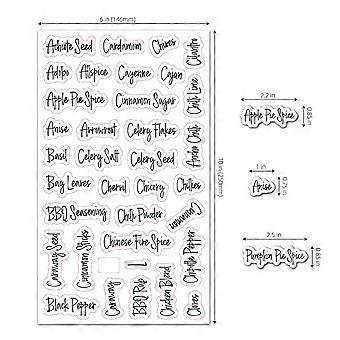 6 in (146mm)
Achiote Seed Cardamom Chives Cilantro
Adobo Allspice Cayenne Cajun
Apple Pie Spice Cinnamon Sugar Chili Lime
Anise Arrowroot Celery Flakes
Basil Celery Salt Celery Seed Ancho Chili
Bay Leaves Chervil Chicory Chilies
BBQ Seasoning Chili Powder Cinnamon
Caraway Seed Cinnamon Sticks Chinese Five Spice Chipotle Pepper
Black Pepper Caraway BBQ Rub Chicken Blend Cloves
10 in
2.2 in
Apple Pie Spice
0.65 in
1 in
Anise
0.75 in
2.5 in
Pumpkin Pie Spice
0.65 in